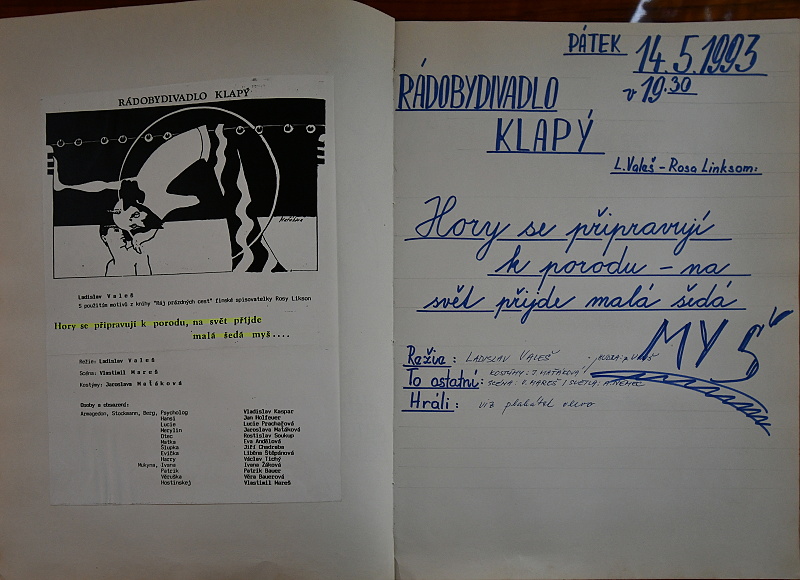 RÁDOBYDIVADLO KLAPÝ
Maťáková
Ladislav Valeš
S použitím motivů z knihy "Ráj prázdných cest" finské spisovatelky Rosy Likson
Hory se připravují k porodu, na svět přijde
malá šedá myš....
Režie: Ladislav Valeš
Scéna: Vlastimil Mareš
Kostýmy: Jaroslava Maťáková
Osoby a obsazení:
Armagedon, Stockmann, Berg, Psycholog Vladislav Kaspar
Hansi Jan Holfeuer
Lucie Lucie Prachařová
Merylin Jaroslava Maťáková
Otec Rostislav Soukup
Matka Eva Andělová
Šlupka Jiří Chadraba
Evička Liběna Štěpánová
Harry Václav Tichý
Mukyna, Ivana Ivana Žáková
Patrik Patrik Bauer
Věruška Věra Bauerová
Hostinskej Vlastimil Mareš
PÁTEK 14.5.1993
v 19.30
RÁDOBYDIVADLO
KLAPÝ
L. Valeš - Rosa Linksom:
Hory se připravují
k porodu - na
svět přijde malá šedá
MYŠ
Režie: LADISLAV VALEŠ
To ostatní: KOSTÝMY: J. MAŤÁKOVÁ
SCÉNA: V. MAREŠ / SVĚTLA: A. NĚMEC
Hráli: viz plakátek vlevo